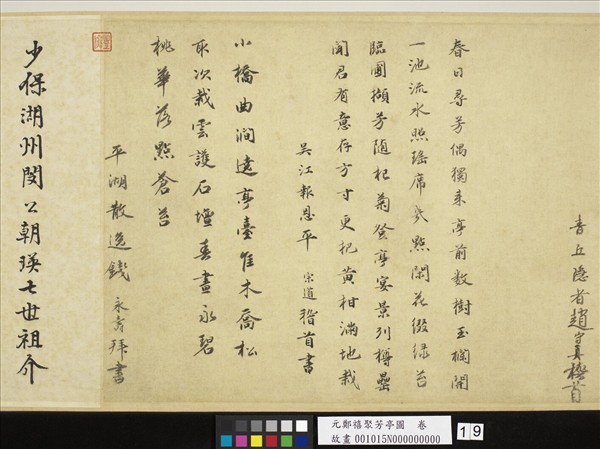 青丘隐者趙稽首
春日尋芳偶獨來亭前數樹玉欄開
一池流水照瑤席幾點閑花綴緑苔
臨圃擷芳隨杞菊登亭宴景列樽罍
聞君有意存方寸更把黄柑滿地栽
吳江報恩平 宗道稽首書
小橋曲澗遶亭臺佳木喬松
取次栽雲護石壇春晝永碧
桃華落點蒼苔
平湖散逸錢 永壽拜書
少保湖州閔公朝瑛七世祖介
元鄭禧聚芳亭圖 卷
故畫 001015N000000000
19